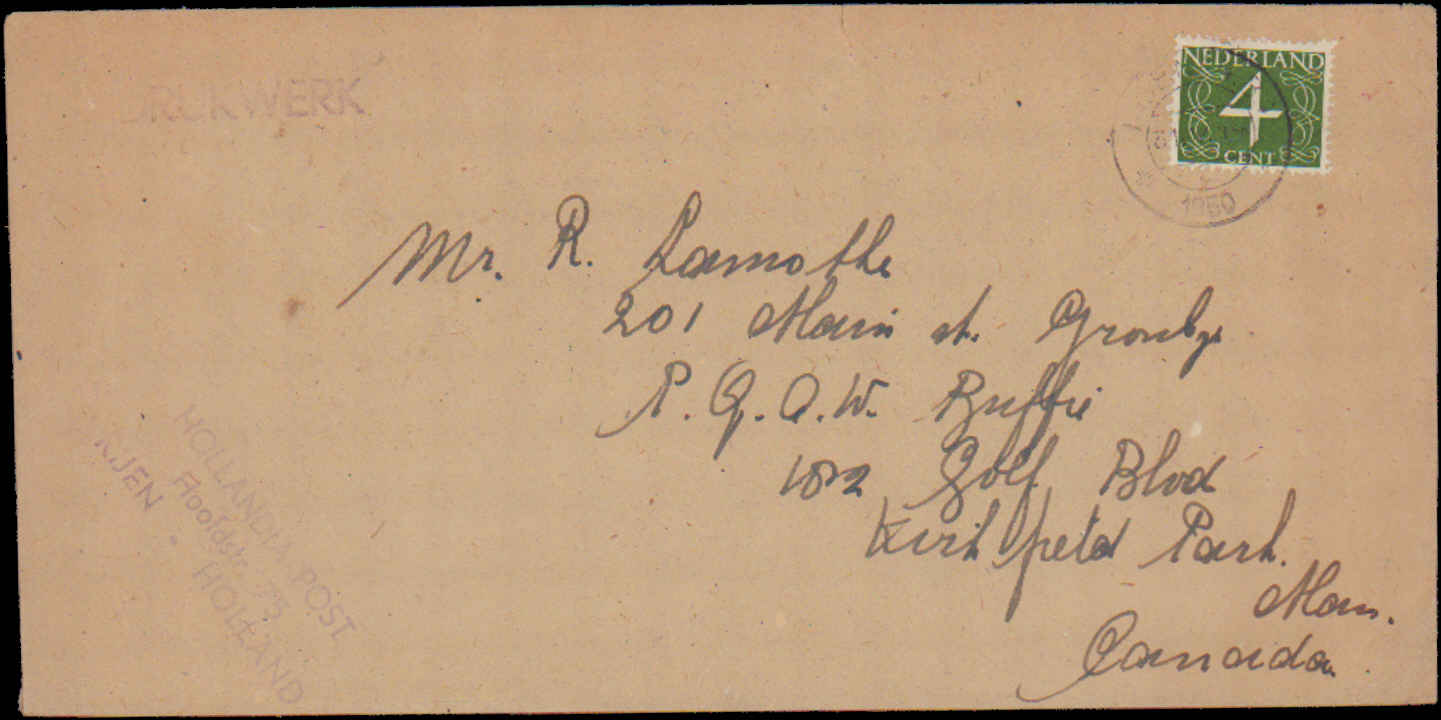 DRUKWERK
NEDERLAND
4
CENT
1950
Mr. R. Lamothe
201 Main st. Granby
P.Q. O.W. Buffie
182 Golf Blvd
Kirkfield Park.
Man.
Canada
HOLLANDIA POST
Hoofdstr. 73
RIJEN • HOLLAND